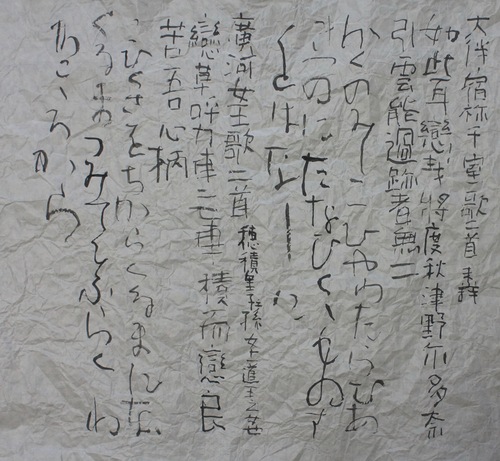 大伴宿祢千室歌一首 未詳
如此耳戀哉將度秋津野尓多奈
引雲能過跡者無二
かくのみしこひやわたらむあ
きつのにたなひくくものす
くとはなしに
廣河女王歌二首 穂積皇子孫女上道王之女
戀草呼力車二七車積而戀良
苦吾心柄
こひくさをちからくるまにな
くるまつみてこふらくわ
かこころから